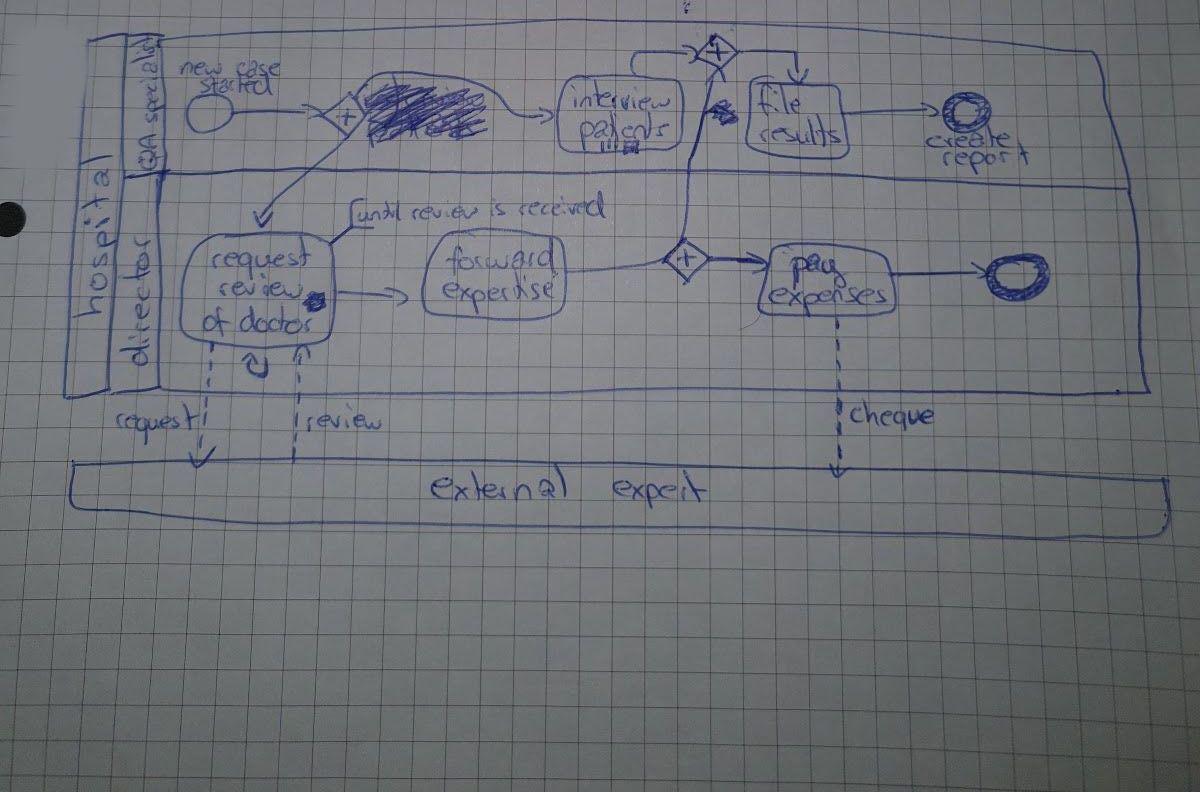 hospital
QA specialist
director
new case
started
interview
patients
file
results
create
report
until review is received
request
review
of doctor
forward
expertise
pay
expenses
request
review
cheque
external expert